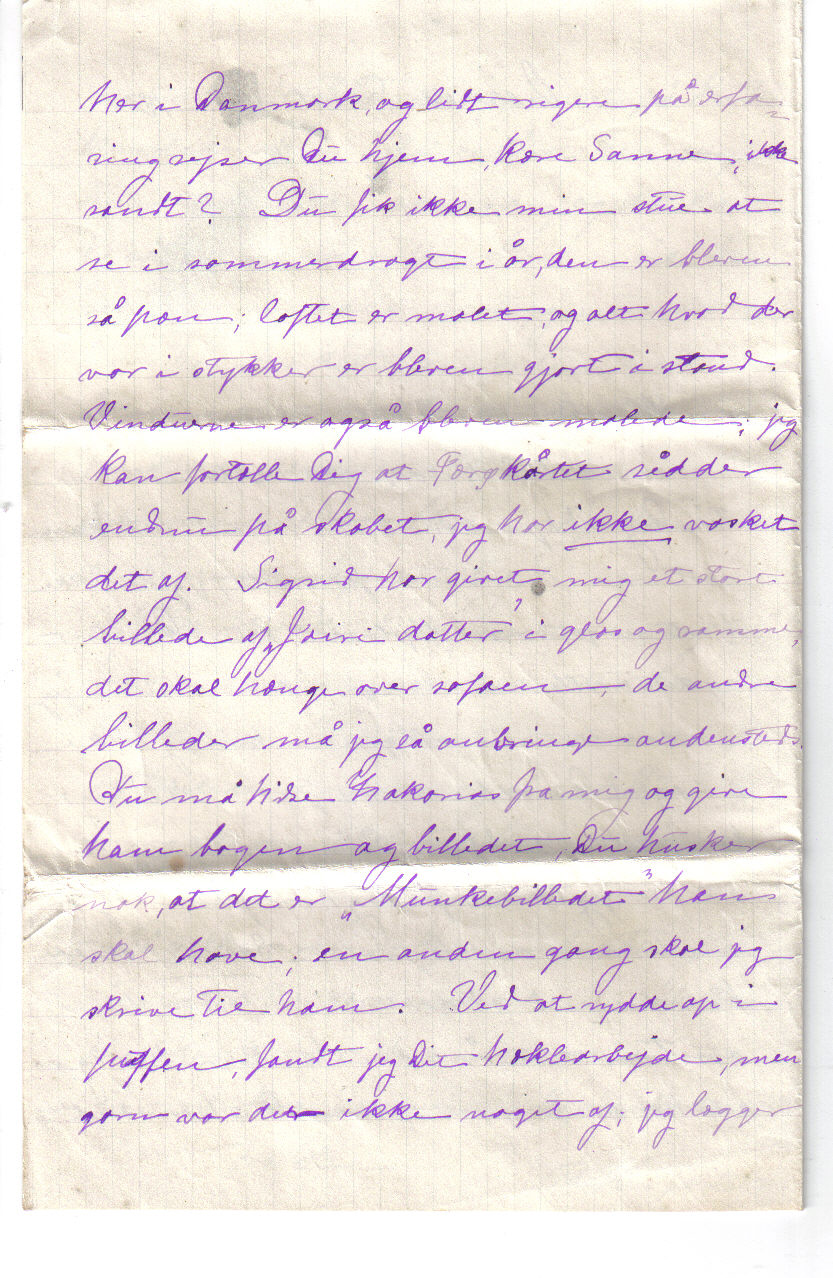 her i Danmark, og lidt rigere på erfa-
ring rejser Du hjem, kære Sanne, ikke
sandt? Du fik ikke min stue at
se i sommerdragt i år, den er bleven
så pæn; loftet er malet, og alt hvad der
var i stykker er bleven gjort i stand.
Vinduerne er også blevne malede; jeg
kan fortælle Dig at sidder
endnu på skabet, jeg har ikke vasket
det af. Sigrid har givet mig et stort
billede af „Jairi datter” i glas og ramme,
det skal hænge over sofaen, de andre
billeder må jeg så anbringe andensteds.
Du må hilse Zakarias fra mig og give
ham bogen og billedet, Du husker
nok, at det er „Munkebilledet” han
skal have; en anden gang skal jeg
skrive til ham. Ved at rydde op i
puffen, fandt jeg Dit hæklearbejde, men
garn var der ikke noget af; jeg lægger